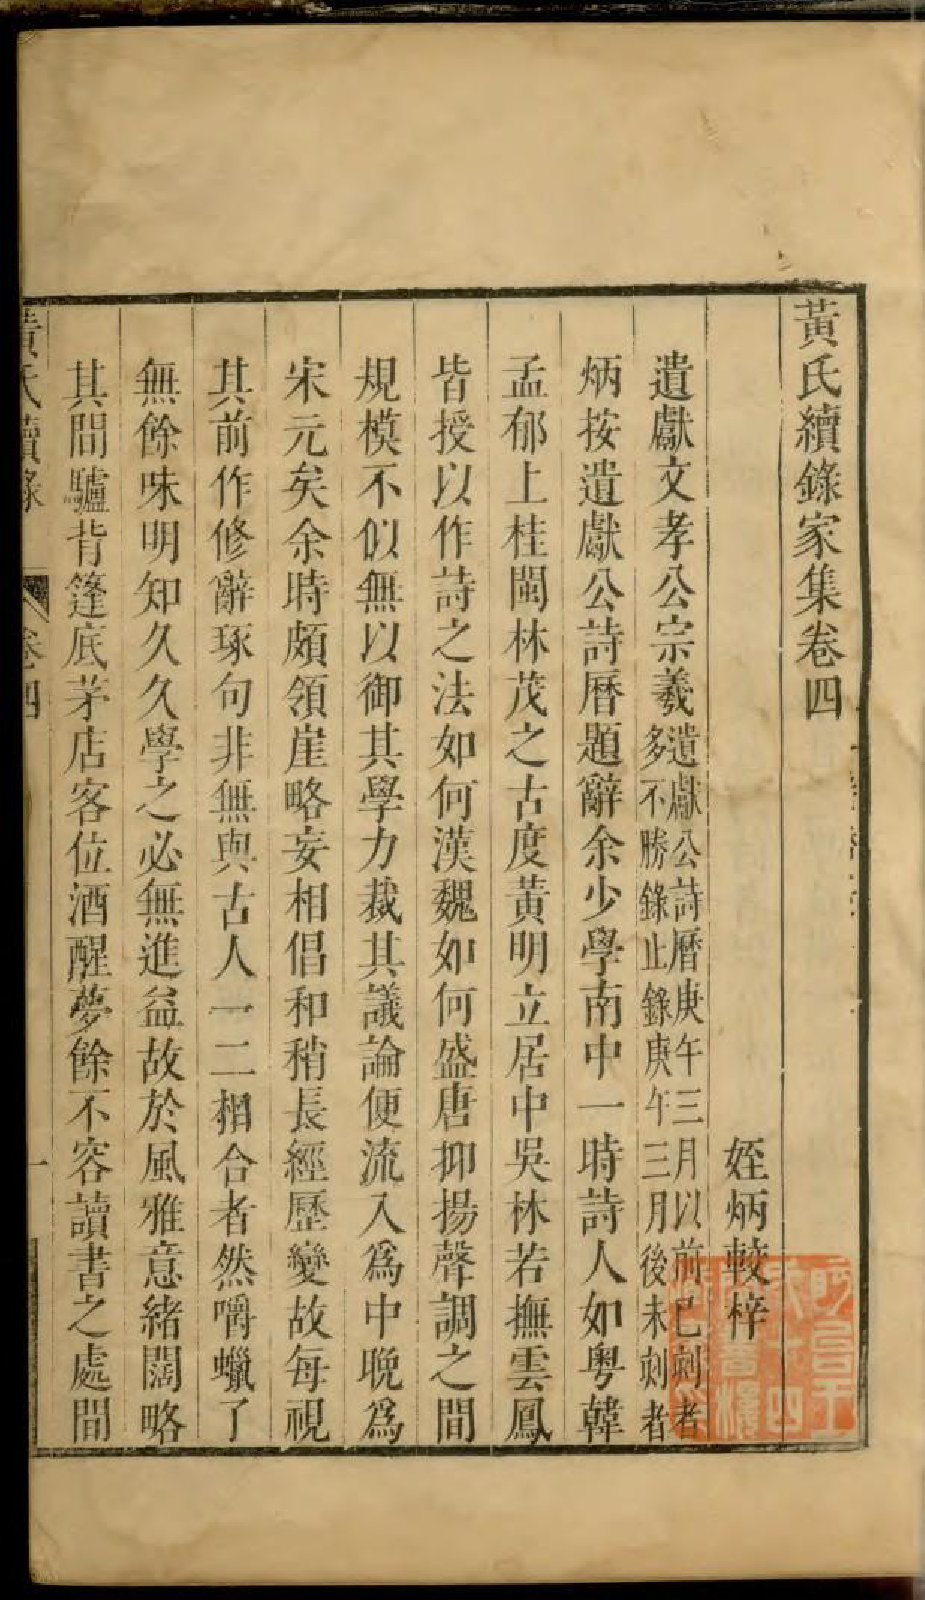 黃氏續錄家集卷四
姪炳較梓
遺獻文孝公宗羲遺獻公詩曆庚午三月以前已刺者
多不勝錄止錄庚午三月後未刻者
炳按遺獻公詩曆題辭余少學南中一時詩人如粤韓
孟郁上桂閩林茂之古度黃明立居中吳林若撫雲鳳
皆授以作詩之法如何漢魏如何盛唐抑揚聲調之間
規模不似無以御其學力裁其議論便流入爲中晚爲
宋元矣余時頗領崖略妄相倡和稍長經歷變故每視
其前作修辭琢句非無與古人一二相合者然嚼蠟了
無餘味明知久久學之必無進益故於風雅意緒闊略
其間驢背篷底茅店客位酒醒夢餘不容讀書之處間
黃氏續錄 卷四 一